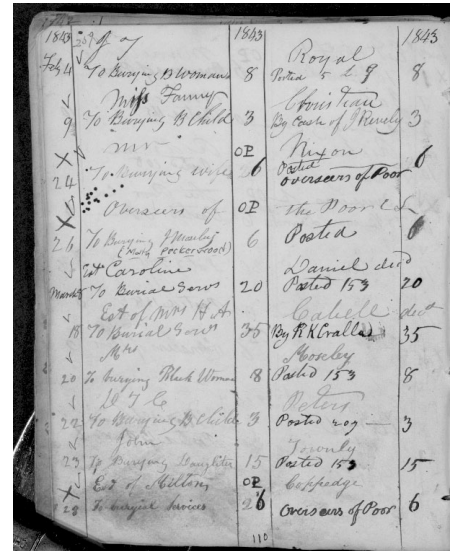 1843 1843 1843
Royal
Feby 4 To Burying B Woman 8 Posted 8
Miss Fanny Christian
9 To Burying B Child 3 By Cash of J 3
Mr OP Nixon
24 To Burying wife 6 Posted overseers of Poor 6
Overseers of OP the Poor
26 To Burying 6 Posted 6
Est Caroline Daniel decd
March To Burial Servs 20 Posted 153 20
Est of Mrs H A Cabell decd
18 To Burial Servs 35 By R K Cralle 35
Mrs Mosely
20 To burying Black Woman 8 Posted 153 8
Peters
22 To Burying B Child 3 Posted 209 3
John Townly
23 To Burying Daughter 15 Posted 153 15
Est of Milton OP Coppedge
28 To burial Services 6 Overseers of Poor 6
110